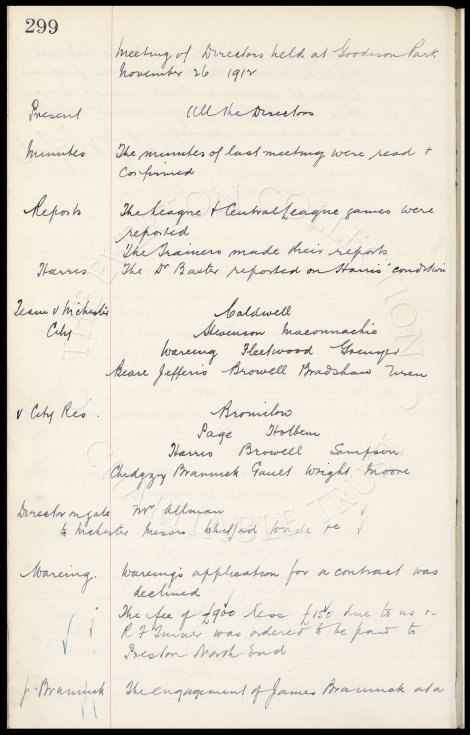 299
Meeting of Directors held at Goodison Park
November 26 1912
Present All the Directors
Minutes The minutes of last meeting were read +
confirmed
Reports The League + Central League games were
reported
The Trainers made their reports
Harris The Dr Baxter reported on Harris' condition
Team v M'chester Caldwell
City Stevenson Maconnachie
Wareing Fleetwood Grenyer
Beare Jefferis Browell Bradshaw Uren
v City Res. Bromilow
Page Holbem
Harris Browell Simpson
Chedgzoy Brannick Gault Wright Moore
Director on gate Mr Allman
to M'chester Messrs Whitford Wade
Wareing. Wareing's application for a contract was
declined
The fee of £900 less £150 due to us
R F Turner was ordered to be paid to
Preston North End
J. Brannick The engagement of James Brannick at a
THE EVERTON COLLECTION
CHARITABLE TRUST